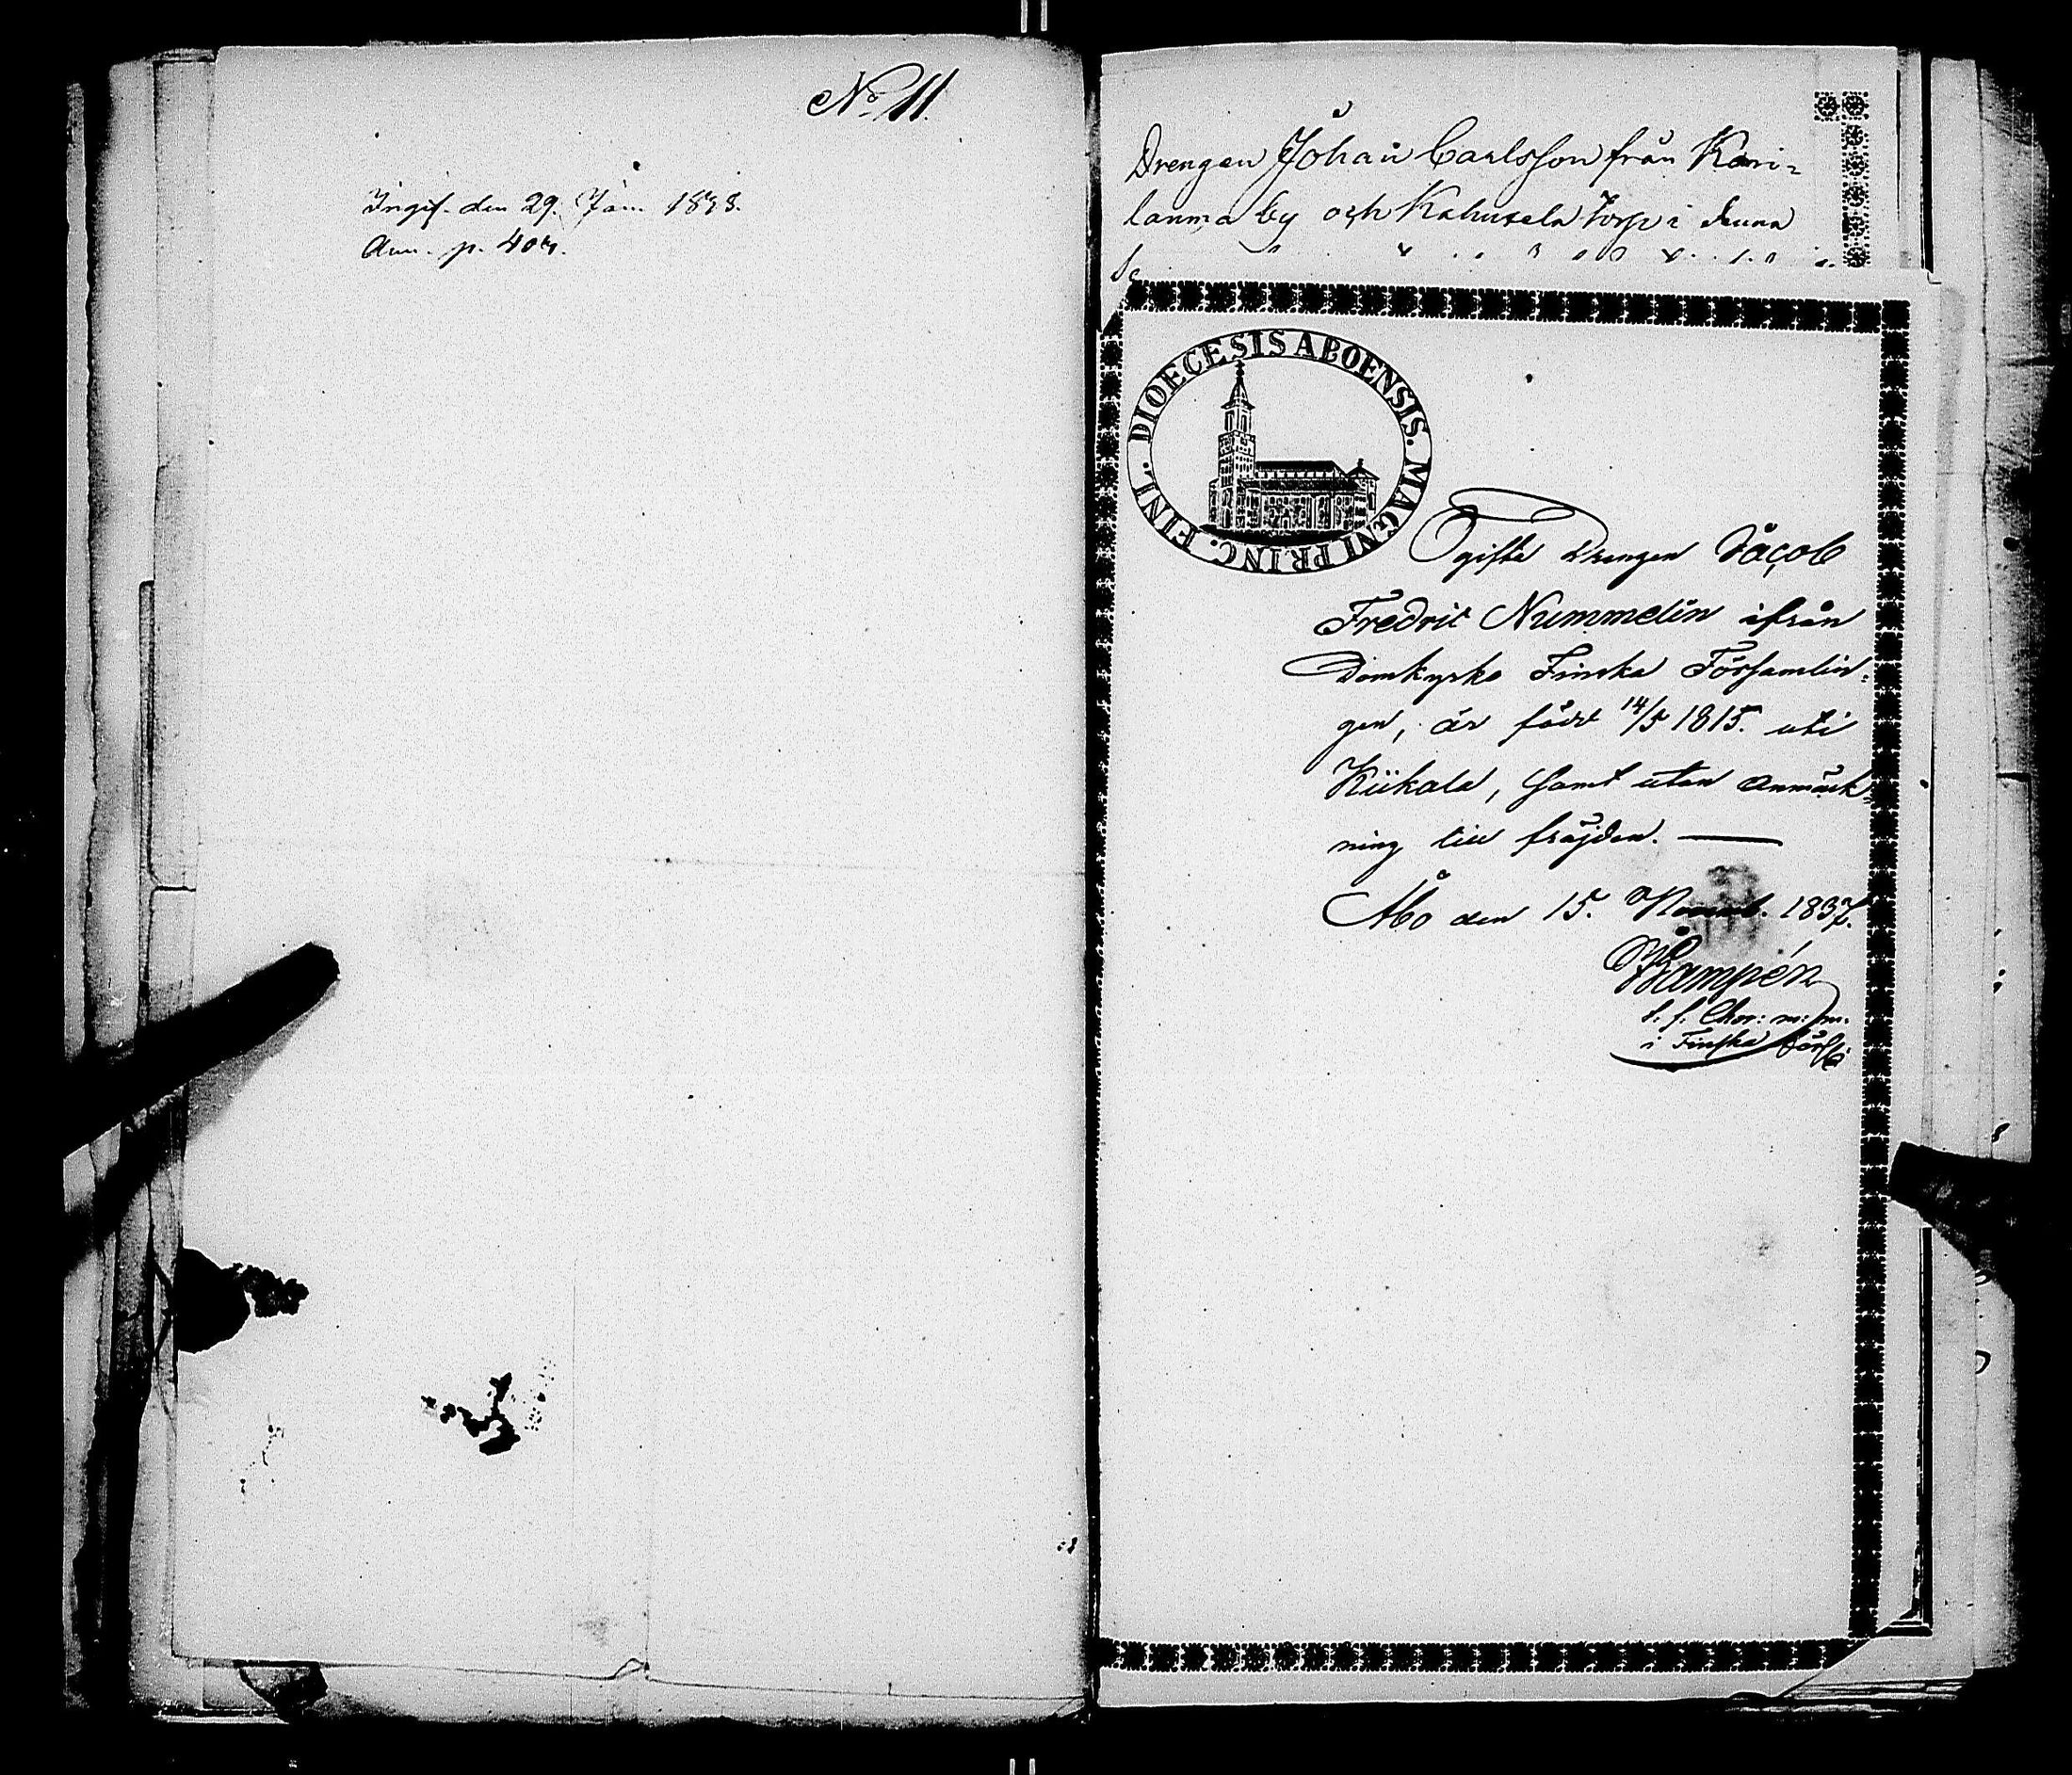 No 11.
Ingif. den 29. Jan. 1838.
Ann. p. 404.
Drengen Johan Carlsson från Kari-
lanma by och Kahurala Torp i denna
DIOECESIS ABOENSIS. MAGNI PRINC. FINL.
Ogifta Drengen Jacob
Fredric Nummelin ifrån
Domkyrko Finska Församlin-
gen, är född 14/5 1815. uti
Kiikala, samt utan anmärk-
ning till fräjden. —
Åbo den 15. Novemb. 1837.
t. f. Cher: m: m.
i Finska förs: